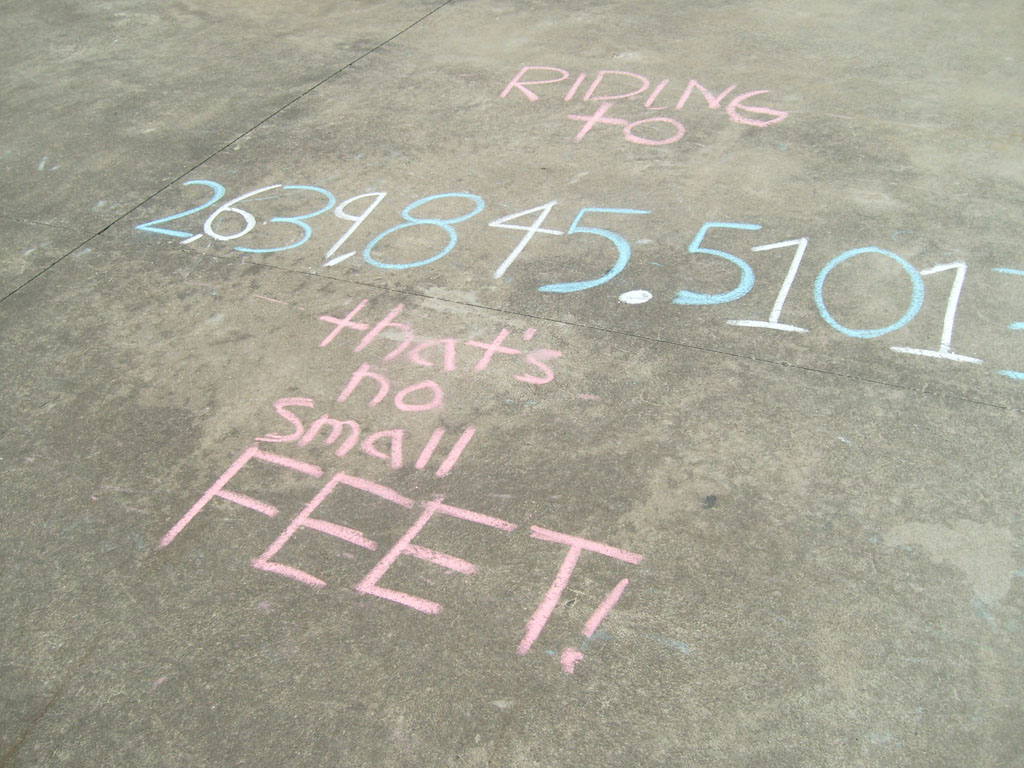 RIDING
to
2,639845.5101
that's
no
small
FEET!